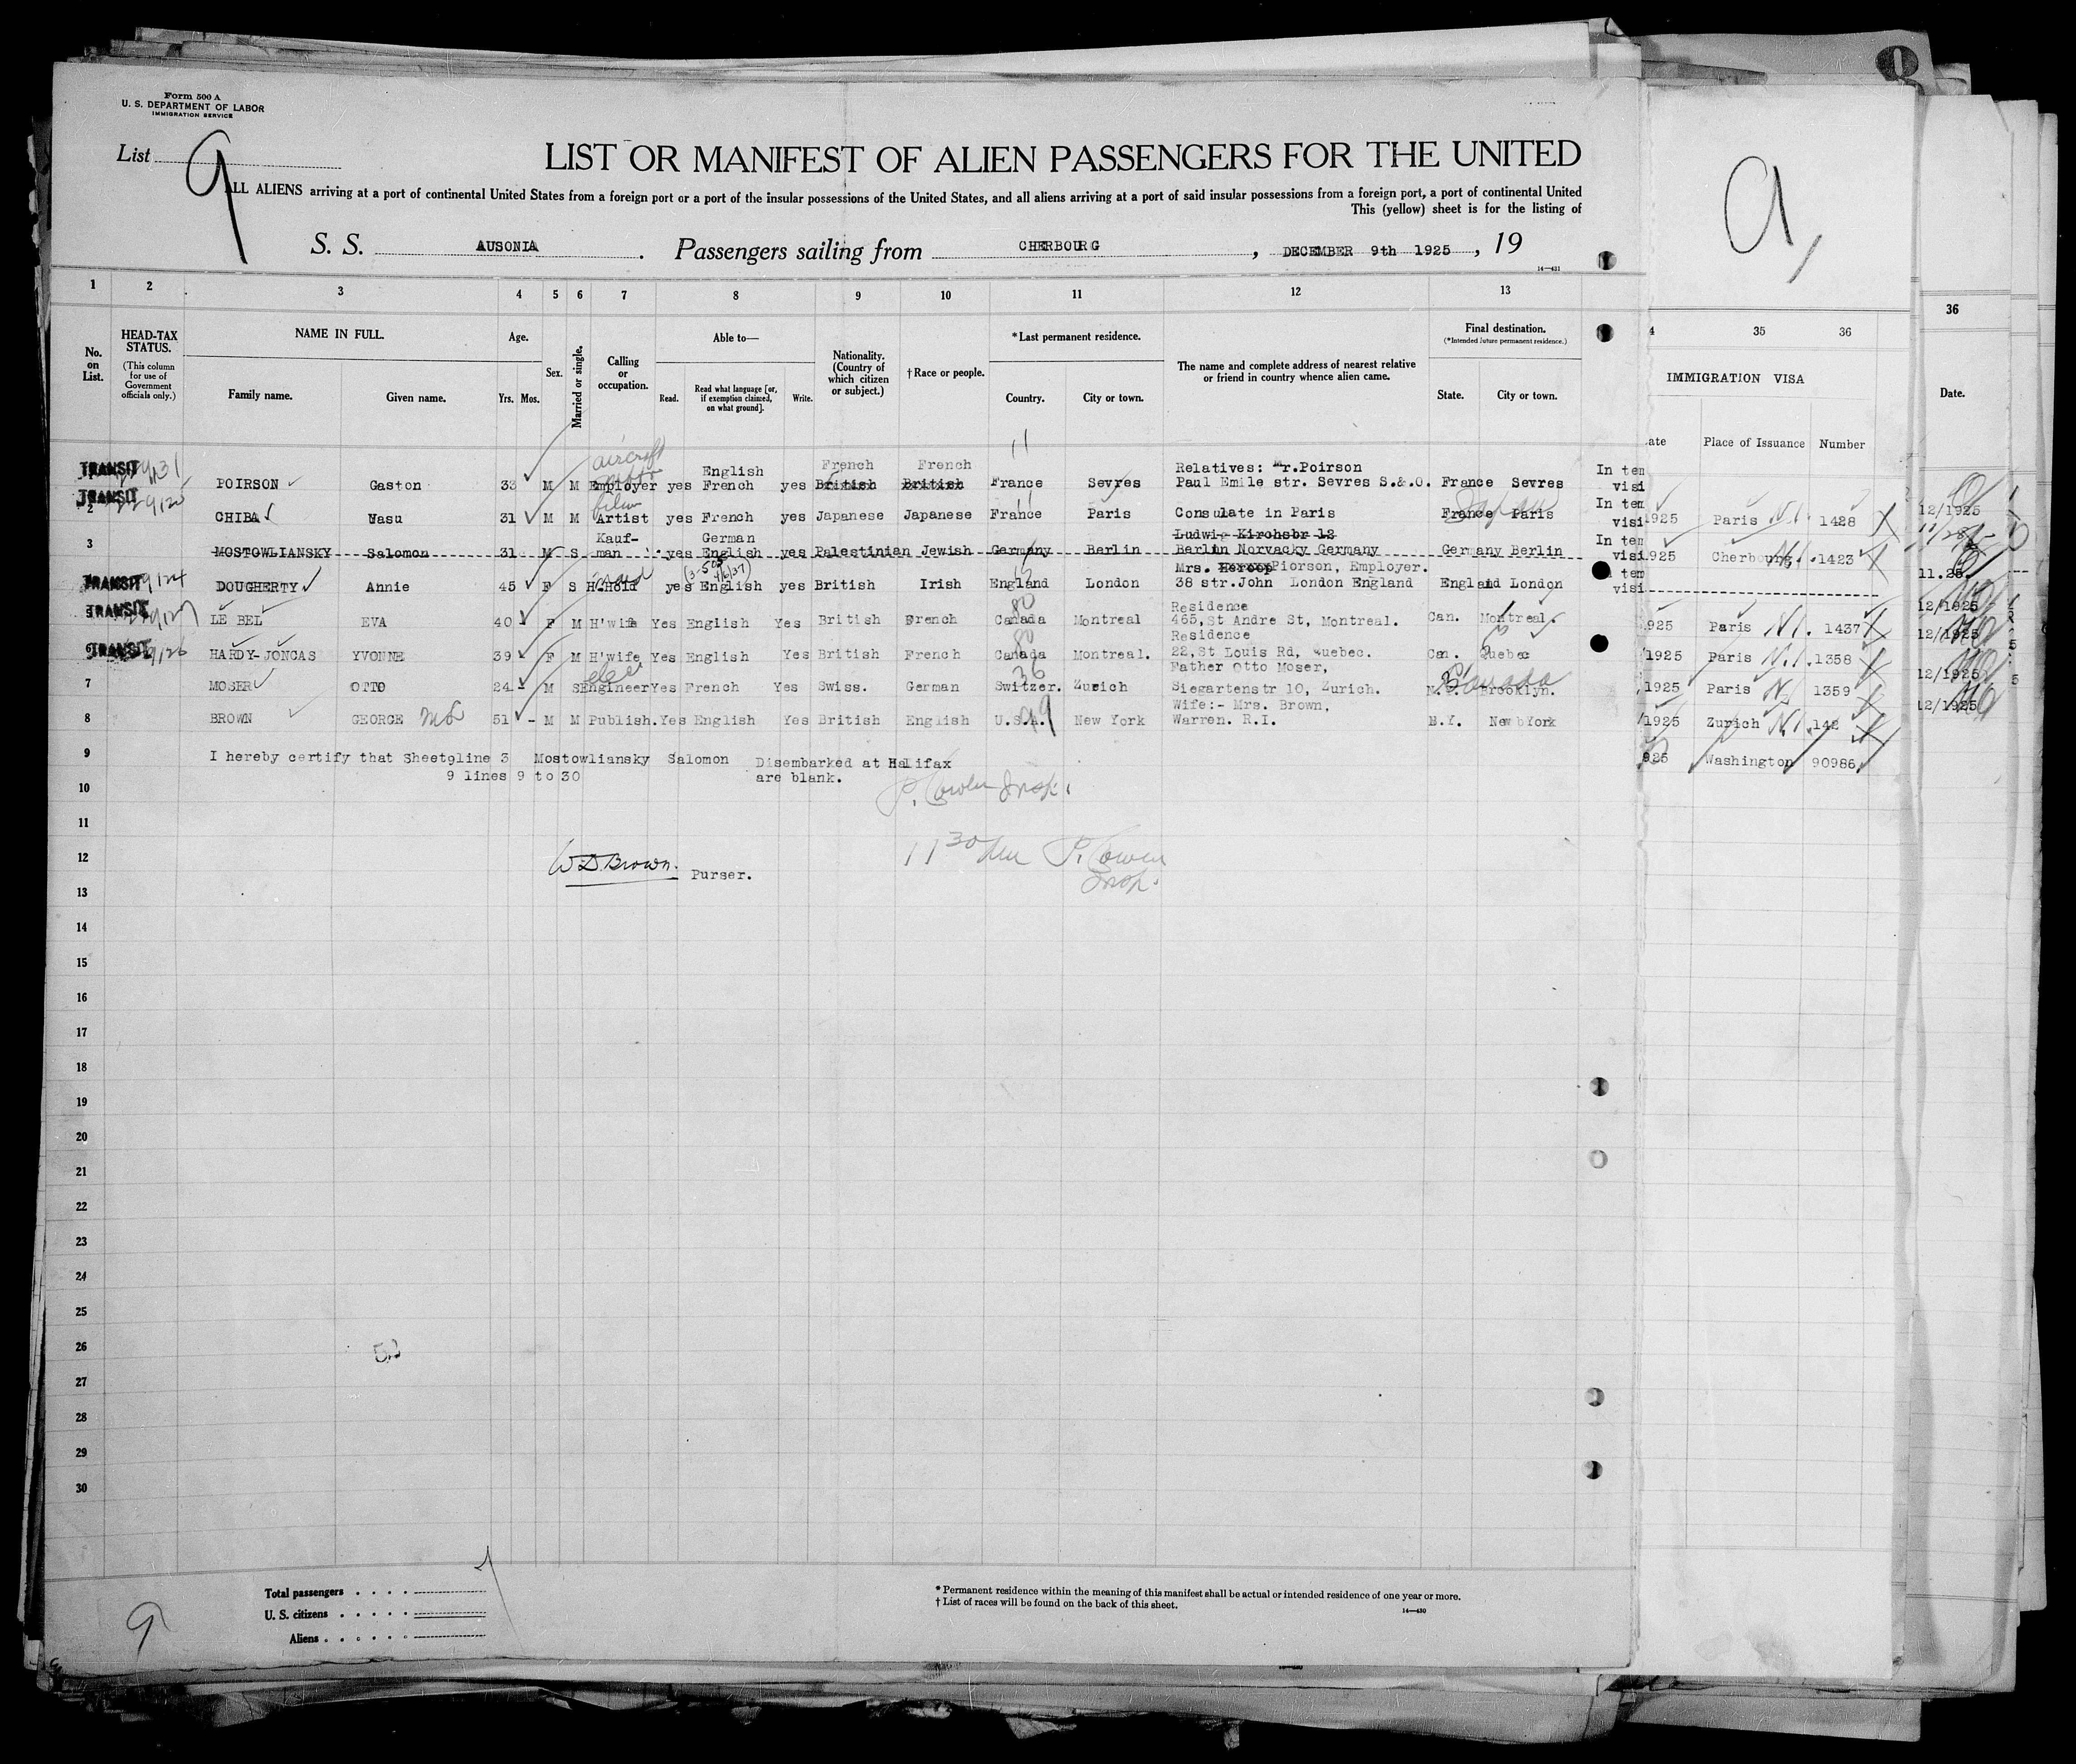 Form 500 A
U. S. DEPARTMENT OF LABOR
IMMIGRATION SERVICE
List 9
LIST OR MANIFEST OF ALIEN PASSENGERS FOR THE UNITED
ALL ALIENS arriving at a port of continental United States from a foreign port or a port of the insular possessions of the United States, and all aliens arriving at a port of said insular possessions from a foreign port, a port of continental United
This (yellow) sheet is for the listing of
S. S. AUSONIA. Passengers sailing from CHERBOURG, DECEMBER 9th 1925, 19
14—431
1 2 3 4 5 6 7 8 9 10 11 12 13
No. on List.
HEAD-TAX STATUS.
(This column for use of Government officials only.)
NAME IN FULL.
Family name. Given name.
Age.
Yrs. Mos.
Sex.
Married or single.
Calling or occupation.
Able to—
Read. Read what language [or, if exemption claimed, on what ground]. Write.
Nationality. (Country of which citizen or subject.)
† Race or people.
* Last permanent residence.
Country. City or town.
The name and complete address of nearest relative or friend in country whence alien came.
Final destination.
(*Intended future permanent residence.)
State. City or town.
35 36
IMMIGRATION VISA
Place of Issuance Number
36
Date.
aircraft
English French French Relatives: Mr.Poirson In tem
TRANSIT POIRSON Gaston 33 M M Employer yes French yes British British France Sevres Paul Emile str. Sevres S.&.O. France Sevres visi
TRANSIT film Japan In tem
2 CHIBA Yasu 31 M M Artist yes French yes Japanese Japanese France Paris Consulate in Paris France Paris visi 1925 Paris 1428 12/1925
Kauf- German Ludwig Kirchsbr 12 In tem
3 MOSTOWLIANSKY Salomon 31 M S man yes English yes Palestinian Jewish Germany Berlin Berlin Norvacky Germany Germany Berlin visi 925 Cherbourg 1423
Mrs. Piorson, Employer. tem
TRANSIT DOUGHERTY Annie 45 F S H.Hold yes English yes British Irish England London 38 str.John London England England London visi 11.25.
Residence 12/1925
TRANSIT LE BEL EVA 40 F M H'wife Yes English Yes British French Canada Montreal 465,St Andre St, Montreal. Can. Montreal. 925 Paris 1437
Residence 12/1925
TRANSIT HARDY-JONCAS YVONNE 39 F M H'wife Yes English Yes British French Canada Montreal. 22,St Louis Rd, Quebec. Can. Quebec 1925 Paris 1358
elec Father Otto Moser, Canada 12/1925
7 MOSER OTTO 24 M S Engineer Yes French Yes Swiss. German Switzer. Zurich Siegartenstr 10, Zurich. N.Y. Brooklyn. 1925 Paris 1359
Wife:- Mrs. Brown, 12/1925
8 BROWN GEORGE 51 - M M Publish. Yes English Yes British English U.S.A. New York Warren. R.I. N.Y. New York 1925 Zurich 142
925 Washington 90986
9 I hereby certify that Sheet9line 3 Mostowliansky Salomon Disembarked at Halifax
9 lines 9 to 30 are blank.
10 P. Cowen Insp.
11
12 W D Brown. Purser. 11 30 Am P. Cowen Insp.
13
14
15
16
17
18
19
20
21
22
23
24
25
26
27
28
29
30
Total passengers
U. S. citizens
Aliens
9
* Permanent residence within the meaning of this manifest shall be actual or intended residence of one year or more.
† List of races will be found on the back of this sheet.
14—430